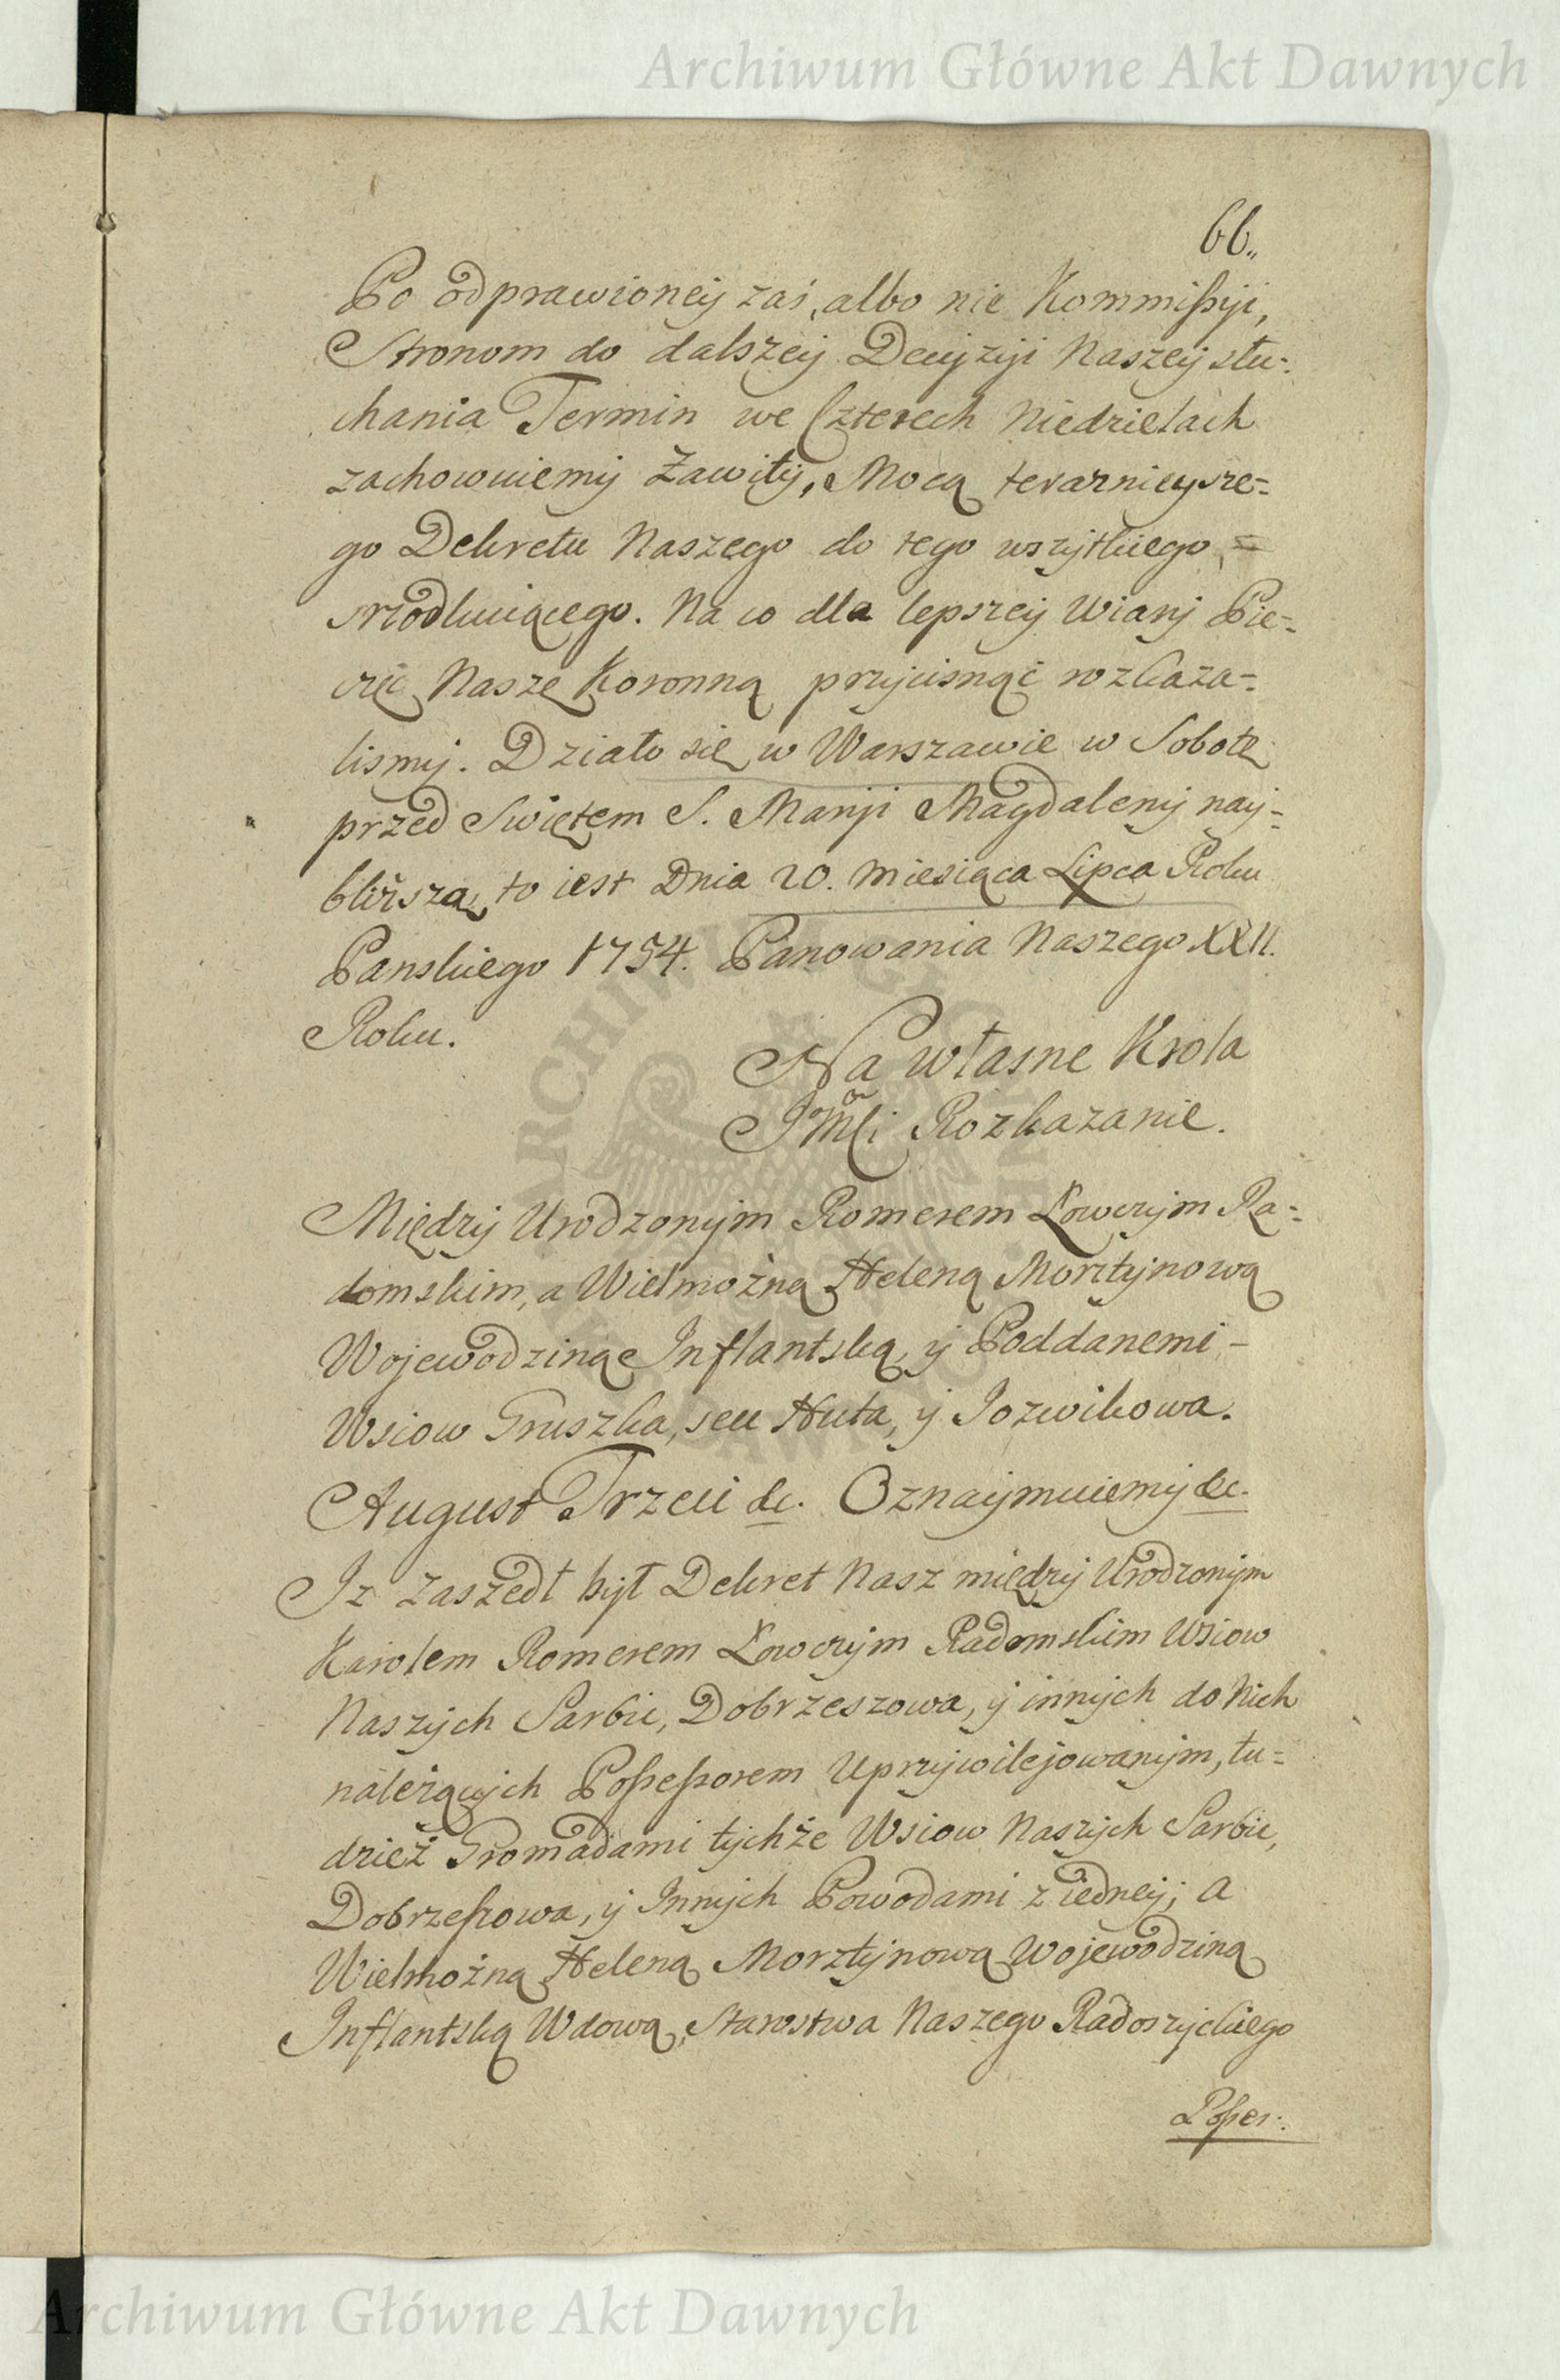 Archiwum Główne Akt Dawnych
66.
Po odprawioney zaś, albo nie Kommißyi,
Stronom do dalszey Decyzyi Naszey słu-
chania Termin we Czterech Niedzielach
zachowuiemy Zawity, Mocą teraznieysze-
go Dekretu Naszego do tego wszytkiego =
srzodkuiącego. Na co dla lepszey Wiary Pie-
częć Naszę Koronną przycisnąć rozkaza-
lismy. Działo się w Warszawie w Sobotę
przed Swiętem S. Maryi Magdaleny nay-
bliższą, to iest Dnia 20. Miesiąca Lipca Roku
Panskiego 1754. Panowania Naszego XXII.
Roku.
Na własne Krola
JMsci Rozkazanie.
Między Urodzonym Romerem Łowczym Ra-
domskim, a Wielmożną Heleną Morsztynową
Wojewodziną Inflantską, y Poddanemi -
Wsiow Gruszka, seu Huta, y Jozwikowa.
August Trzeci &c. Oznaymuiemy &c.
Iz zaszedł był Dekret Nasz między Urodzonym
Karolem Romerem Łowczym Radomskim Wsiow
Naszych Sarbic, Dobrzeszowa, y innych do Nich
należących Poßeßorem Uprzywilejowanym, tu-
dzież Gromadami tychże Wsiow Naszych Sarbic,
Dobrzeßowa, y Innych Powodami z iedney; a
Wielmożną Heleną Morztynową Wojewodziną
Inflantską Wdową, Starostwa Naszego Radoszyckiego
Poßes:
Archiwum Główne Akt Dawnych